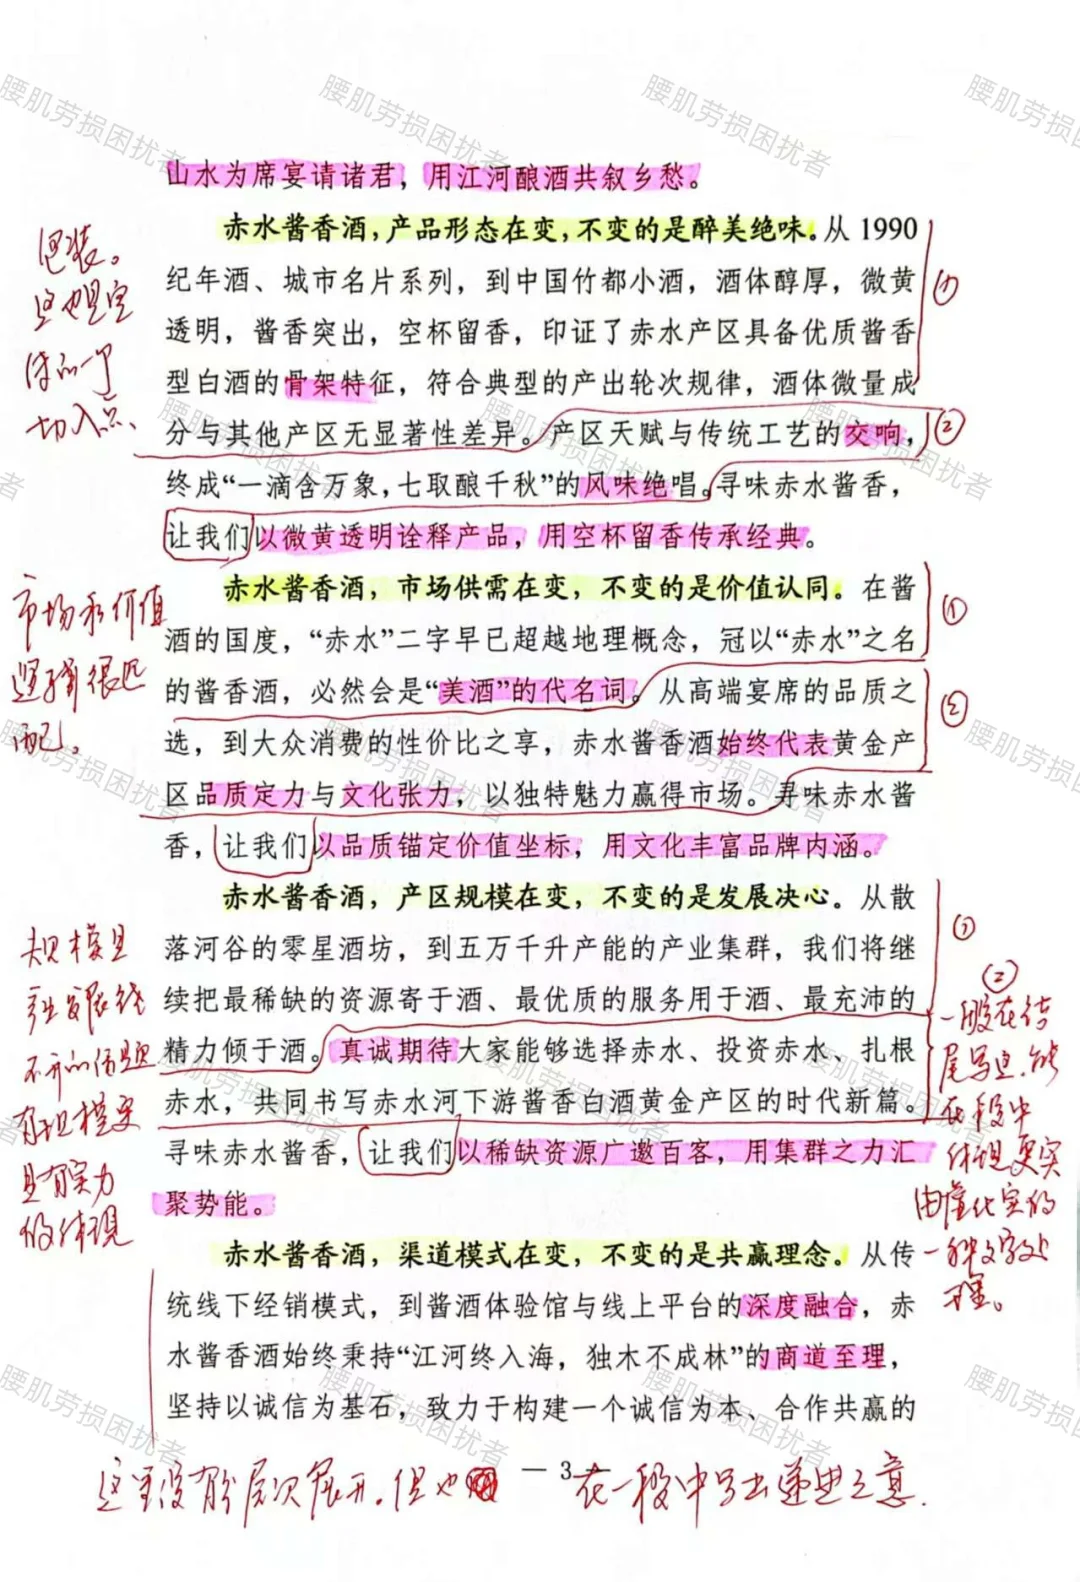 山水为席宴请诸君，用江河酿酒共叙乡愁。
赤水酱香酒，产品形态在变，不变的是醉美绝味。从 1990
纪年酒、城市名片系列，到中国竹都小酒，酒体醇厚，微黄
透明，酱香突出，空杯留香，印证了赤水产区具备优质酱香
型白酒的骨架特征，符合典型的产出轮次规律，酒体微量成
分与其他产区无显著性差异。产区天赋与传统工艺的交响，
终成“一滴含万象，七取酿千秋”的风味绝唱。寻味赤水酱香，
让我们以微黄透明诠释产品，用空杯留香传承经典。
包装。
这也是宣
传的一个
切入点、
①
②
赤水酱香酒，市场供需在变，不变的是价值认同。在酱
酒的国度，“赤水”二字早已超越地理概念，冠以“赤水”之名
的酱香酒，必然会是“美酒”的代名词。从高端宴席的品质之
选，到大众消费的性价比之享，赤水酱香酒始终代表黄金产
区品质定力与文化张力，以独特魅力赢得市场。寻味赤水酱
香，让我们以品质锚定价值坐标，用文化丰富品牌内涵。
市场和价值
逻辑很匹
配。
①
②
赤水酱香酒，产区规模在变，不变的是发展决心。从散
落河谷的零星酒坊，到五万千升产能的产业集群，我们将继
续把最稀缺的资源寄于酒、最优质的服务用于酒、最充沛的
精力倾于酒。真诚期待大家能够选择赤水、投资赤水、扎根
赤水，共同书写赤水河下游酱香白酒黄金产区的时代新篇。
寻味赤水酱香，让我们以稀缺资源广邀百客，用集群之力汇
聚势能。
规模是
产业发展绕
不开的话题
有规模更
是有实力
的体现
①
②
一般在结
尾写且能
在段中
体现更突
由虚化实的
一种文字处
理。
赤水酱香酒，渠道模式在变，不变的是共赢理念。从传
统线下经销模式，到酱酒体验馆与线上平台的深度融合，赤
水酱香酒始终秉持“江河终入海，独木不成林”的商道至理，
坚持以诚信为基石，致力于构建一个诚信为本、合作共赢的
— 3
这里没有分层次展开。但也 在一段中写出递进之意.
腰肌劳损困扰者